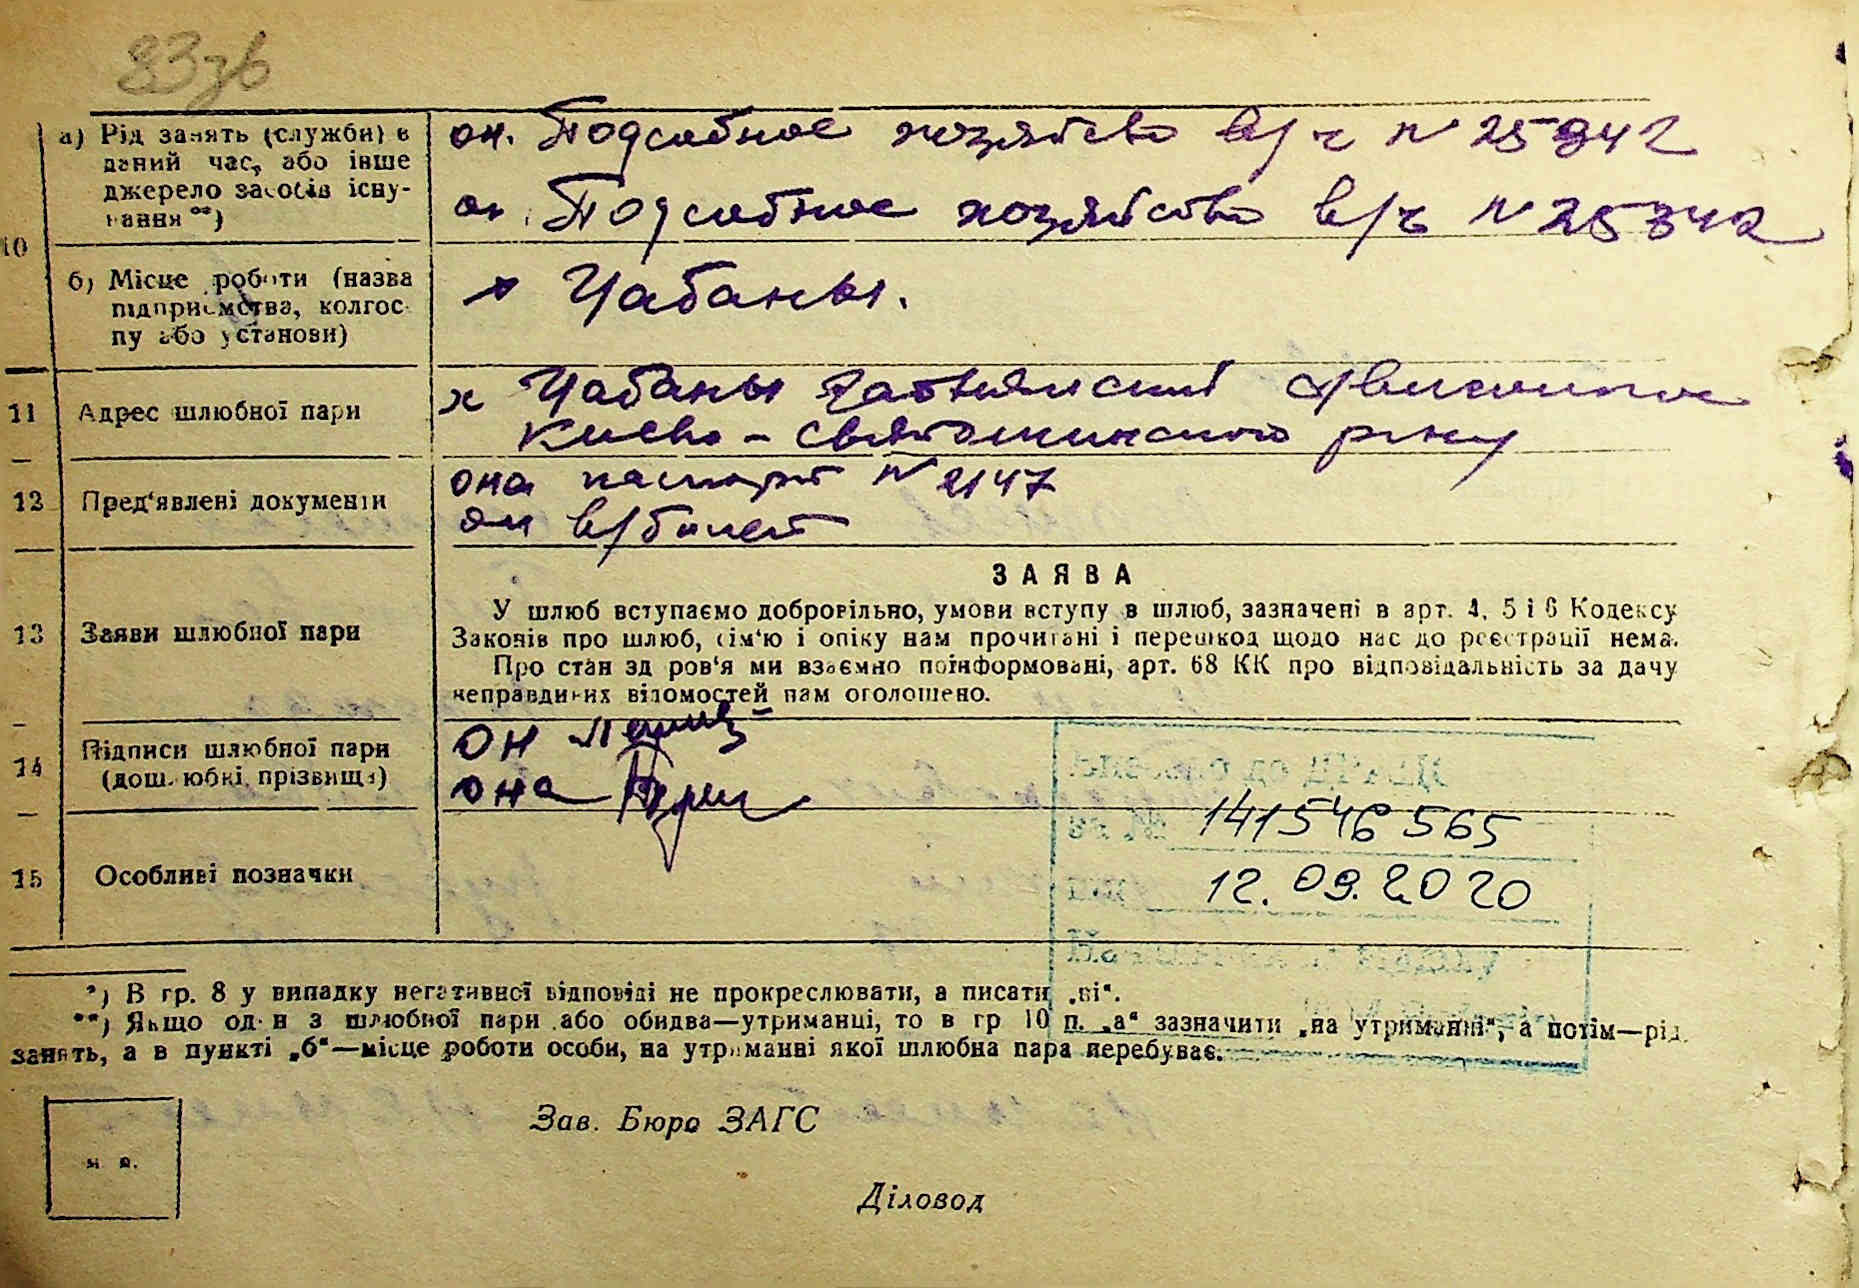 83зв
а) Рід занять (служби) в
даний час, або інше
джерело засобів існу-
вання **)
он. Подсобное хозяйство в/ч N 25942
он. Подсобное хозяйство в/ч N 25342
10
б) Місце роботи (назва
підприємства, колгос-
пу або установи)
х Чабаны.
11 Адрес шлюбної пари
х Чабаны
Киево-Святошинского р-ну
12 Пред'явлені документи
она паспорт N 2147
он в/билет
13 Заяви шлюбної пари
ЗАЯВА
У шлюб вступаємо добровільно, умови вступу в шлюб, зазначені в арт. 4, 5 і 6 Кодексу
Законів про шлюб, сім'ю і опіку нам прочитані і перешкод щодо нас до реєстрації нема.
Про стан здоров'я ми взаємно поінформовані, арт. 68 КК про відповідальність за дачу
неправдивих відомостей нам оголошено.
14 Підписи шлюбної пари
(дошлюбні прізвища)
он
она
141546565
15 Особливі позначки
12.09.2020
*) В гр. 8 у випадку негативної відповіді не прокреслювати, а писати „ні“.
**) Якщо один з шлюбної пари або обидва—утриманці, то в гр 10 п. „а“ зазначити „на утриманні“, а потім—рід
занять, а в пункті „б“—місце роботи особи, на утриманні якої шлюбна пара перебуває.
Зав. Бюро ЗАГС
м п.
Діловод